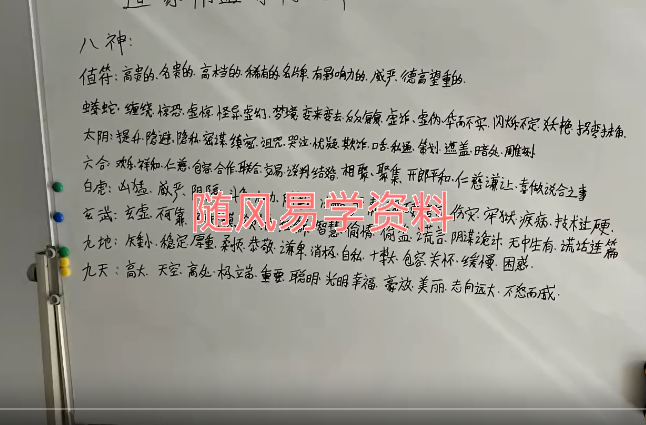 八神:
值符:高贵的.名贵的.高档的.稀有的.名牌.有影响力的.威严.德高望重的.
螣蛇:缠绕.惊恐.虚惊.怪异虚幻.梦境.变来变去.反反复复.虚诈.虚伪.华而不实.闪烁不定.妖艳.拐弯抹角.
太阴:提升.隐避.隐私.密谋.缜密.诅咒.哭泣.忧疑.欺诈.口舌.私通.策划.遮盖.暗处.雕刻
六合:欢乐.祥和.仁慈.包容.合作.联合.交易.谈判.结婚.相聚、聚集.开朗平和.仁慈谦让.喜做说合之事
白虎:凶猛.威严.阴险.伤灾.牢狱.疾病.技术过硬.
玄武:玄虚.智慧.偷情.偷盗.谎言.阴谋诡计.无中生有.谎话连篇
九地:矮小.稳定.厚重.柔顺.恭敬.谦卑.消极.自私.十数.包容.关怀.缓慢.困惑.
九天:高大.天空.高处.极端.重要.聪明.光明幸福.豪放.美丽.志向远大.不怒而威.
随风易学资料